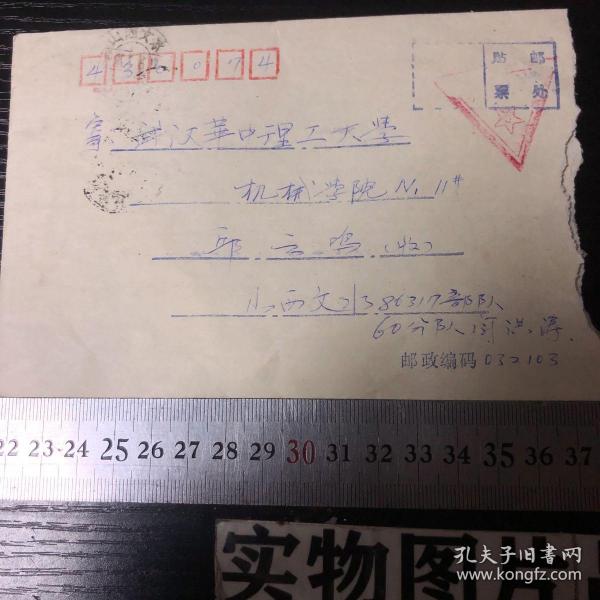 430074
贴邮
票处
寄 武汉华中理工大学
机械学院 N. 11#
邱云鸣(收)
山西文水86317部队
60分队闫洪涛
邮政编码 032103
22 23 24 25 26 27 28 29 30 31 32 33 34 35 36 37
实物图片
孔夫子旧书网
www.kongfz.com